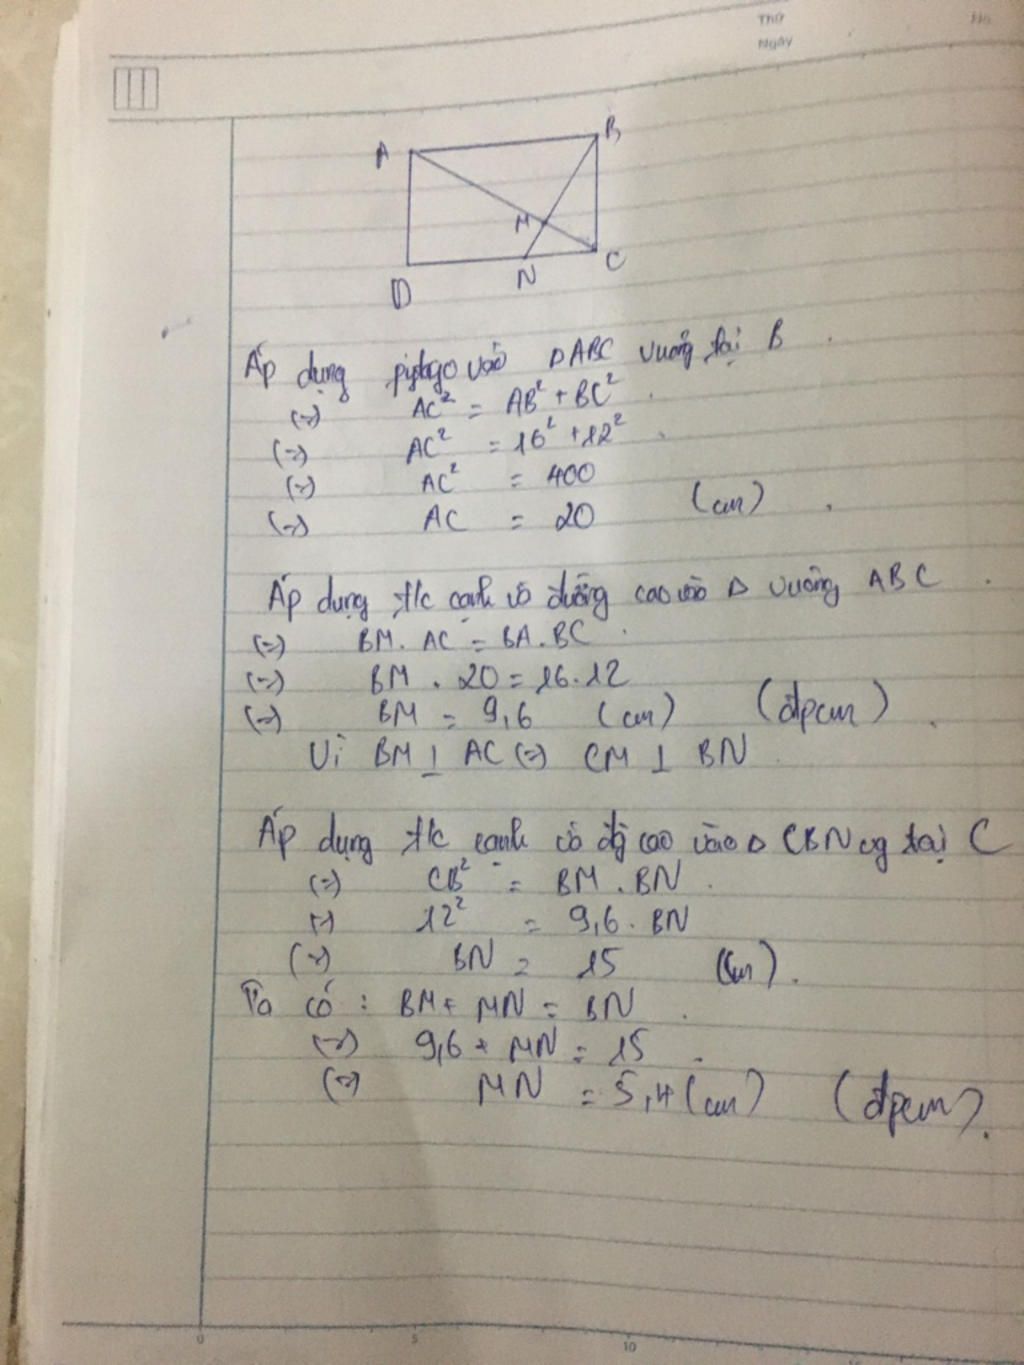 Thứ
Ngày
No.
A
B
M
D
N
C
Áp dụng pytago vào Δ ABC vuông tại B .
(=) AC² = AB² + BC² .
(=) AC² = 16² + 12² .
(=) AC² = 400
(=) AC = 20 (cm) .
Áp dụng t/c cạnh và đường cao vào Δ vuông ABC .
(=) BM . AC = BA . BC .
(=) BM . 20 = 16 . 12
(=) BM = 9,6 (cm) (đpcm) .
Vì BM ⊥ AC (=) CM ⊥ BN
Áp dụng t/c cạnh và đg cao vào Δ CBN vg tại C
(=) CB² = BM . BN .
(=) 12² = 9,6 . BN
(=) BN = 15 (cm) .
Ta có : BM + MN = BN .
(=) 9,6 + MN = 15 .
(=) MN = 5,4 (cm) (đpcm) .
0 5 10